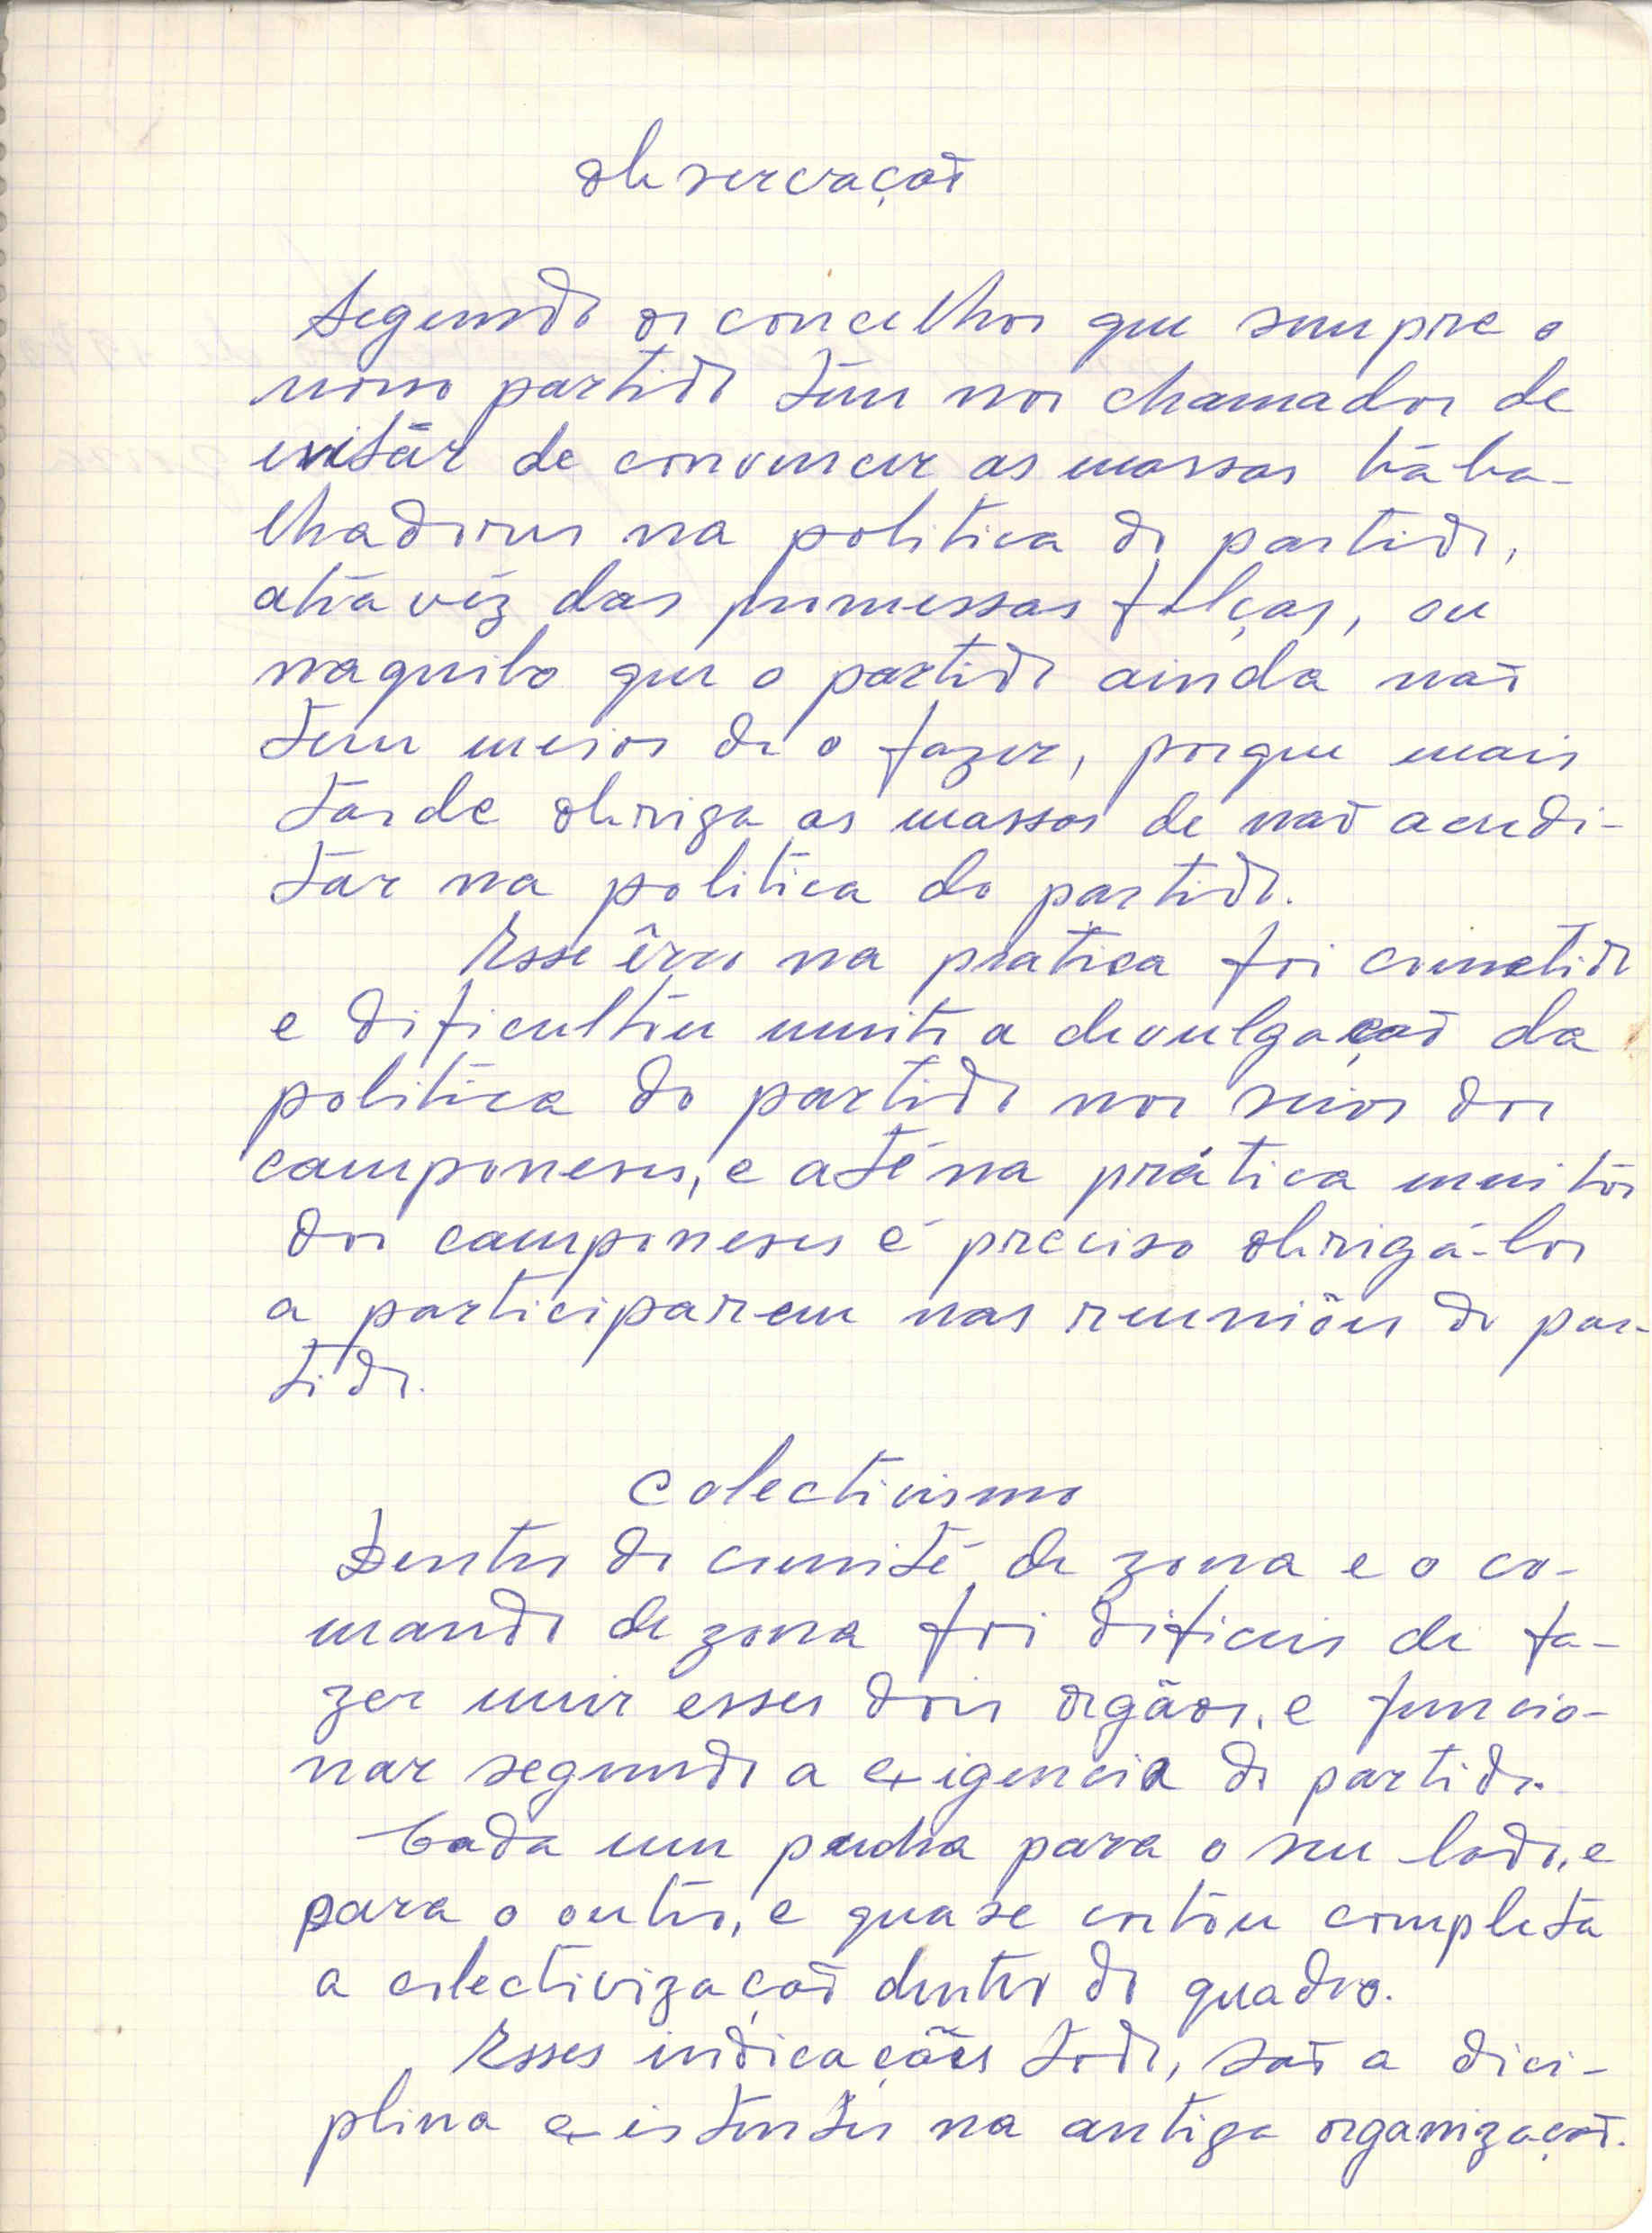 observaçaõ
Segundo os concelhos que sempre o
nosso partido têm nos chamados de
evitár de convencer as massas traba-
lhadores na politica do partido,
atravéz das promessas falças, ou
naquilo que o partido ainda naõ
tem meios de o fazer, porque mais
tarde obriga as massas de naõ acredi-
tar na politica do partido.
Esse êrro na pratica foi cometido
e dificultou muito a devulgaçaõ da
politica do partido nos seios dos
camponeses, e até na prática muitos
dos camponeses é preciso obrigá-los
a participarem nas reuniões do par-
tido.
Colectivismo
Dentro do comité de zona e o co-
mando de zona foi dificeis de fa-
zer unir esses dois orgãos, e funcio-
nar segundo a exigencia do partido.
Cada um puchа para o seu lado, e
para o outro, e quase cortou completa
a colectivizaçaõ dentro do quadro.
Esses indicações todo, saõ a dici-
plina existentes na antiga organizaçaõ.